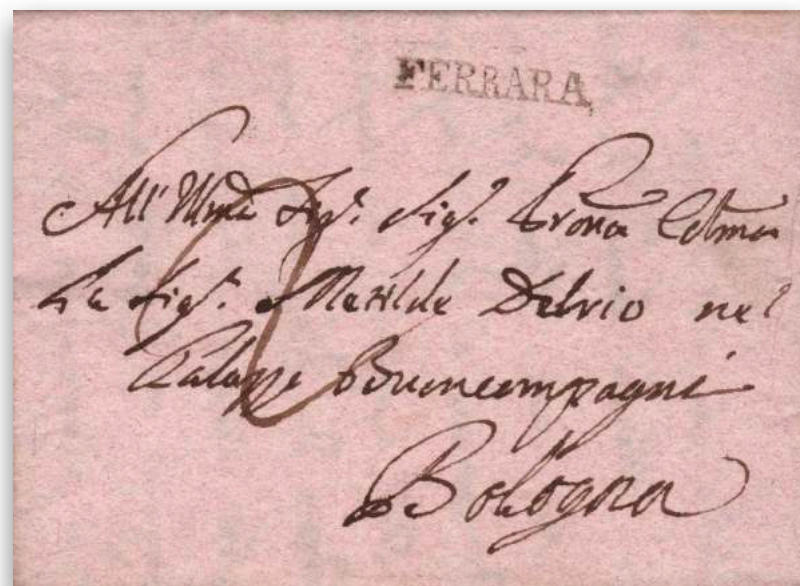 FERRARA
All' Illma Sigra. Sigra. Prona Colma
La Sigra. Matilde Delvio nel
Palazzo Buoncompagni
Bologna